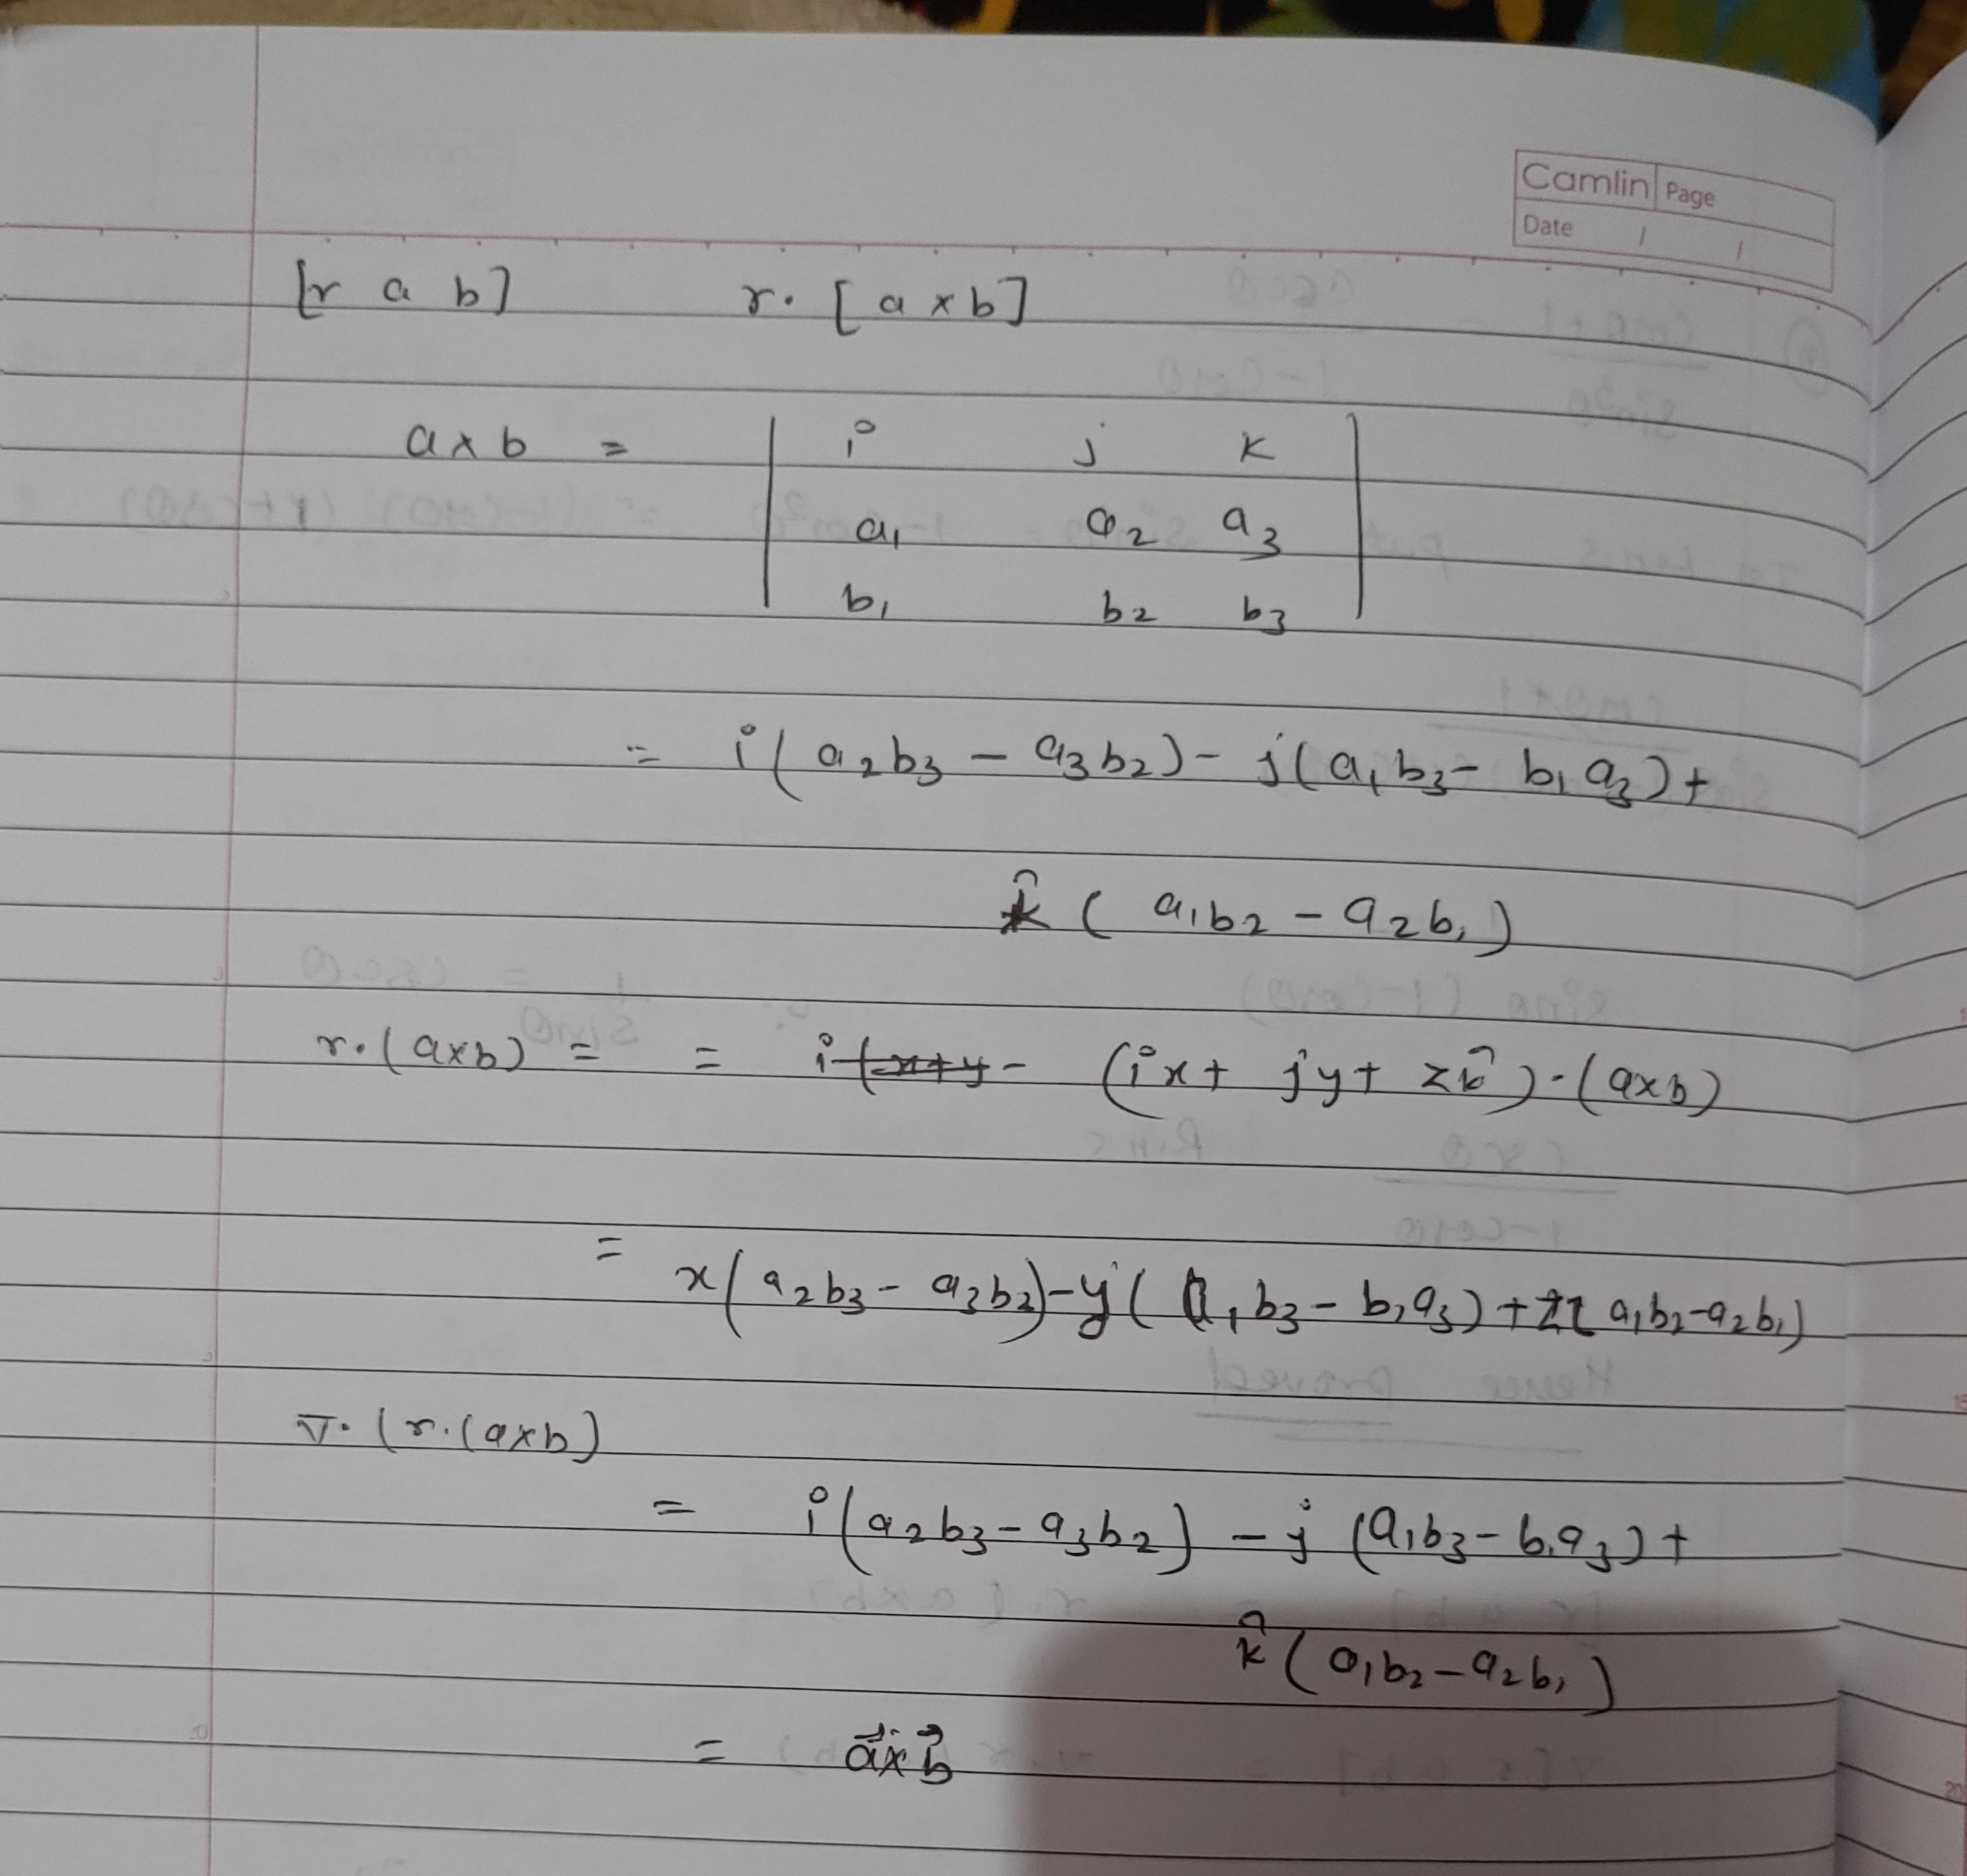 Camlin Page
Date / /
[r a b] r. [a x b]
a x b = | i j k |
| a₁ a₂ a₃ |
| b₁ b₂ b₃ |
= i(a₂b₃ - a₃b₂) - j(a₁b₃ - b₁a₃) +
k̂ (a₁b₂ - a₂b₁)
r.(axb) = = i (ix + jy + zk̂).(axb)
= x(a₂b₃ - a₃b₂) - y(a₁b₃ - b₁a₃) + z(a₁b₂-a₂b₁)
∇.(r.(axb)
= i(a₂b₃ - a₃b₂) - j (a₁b₃ - b₁a₃) +
k̂(a₁b₂ - a₂b₁)
= a⃗xb⃗